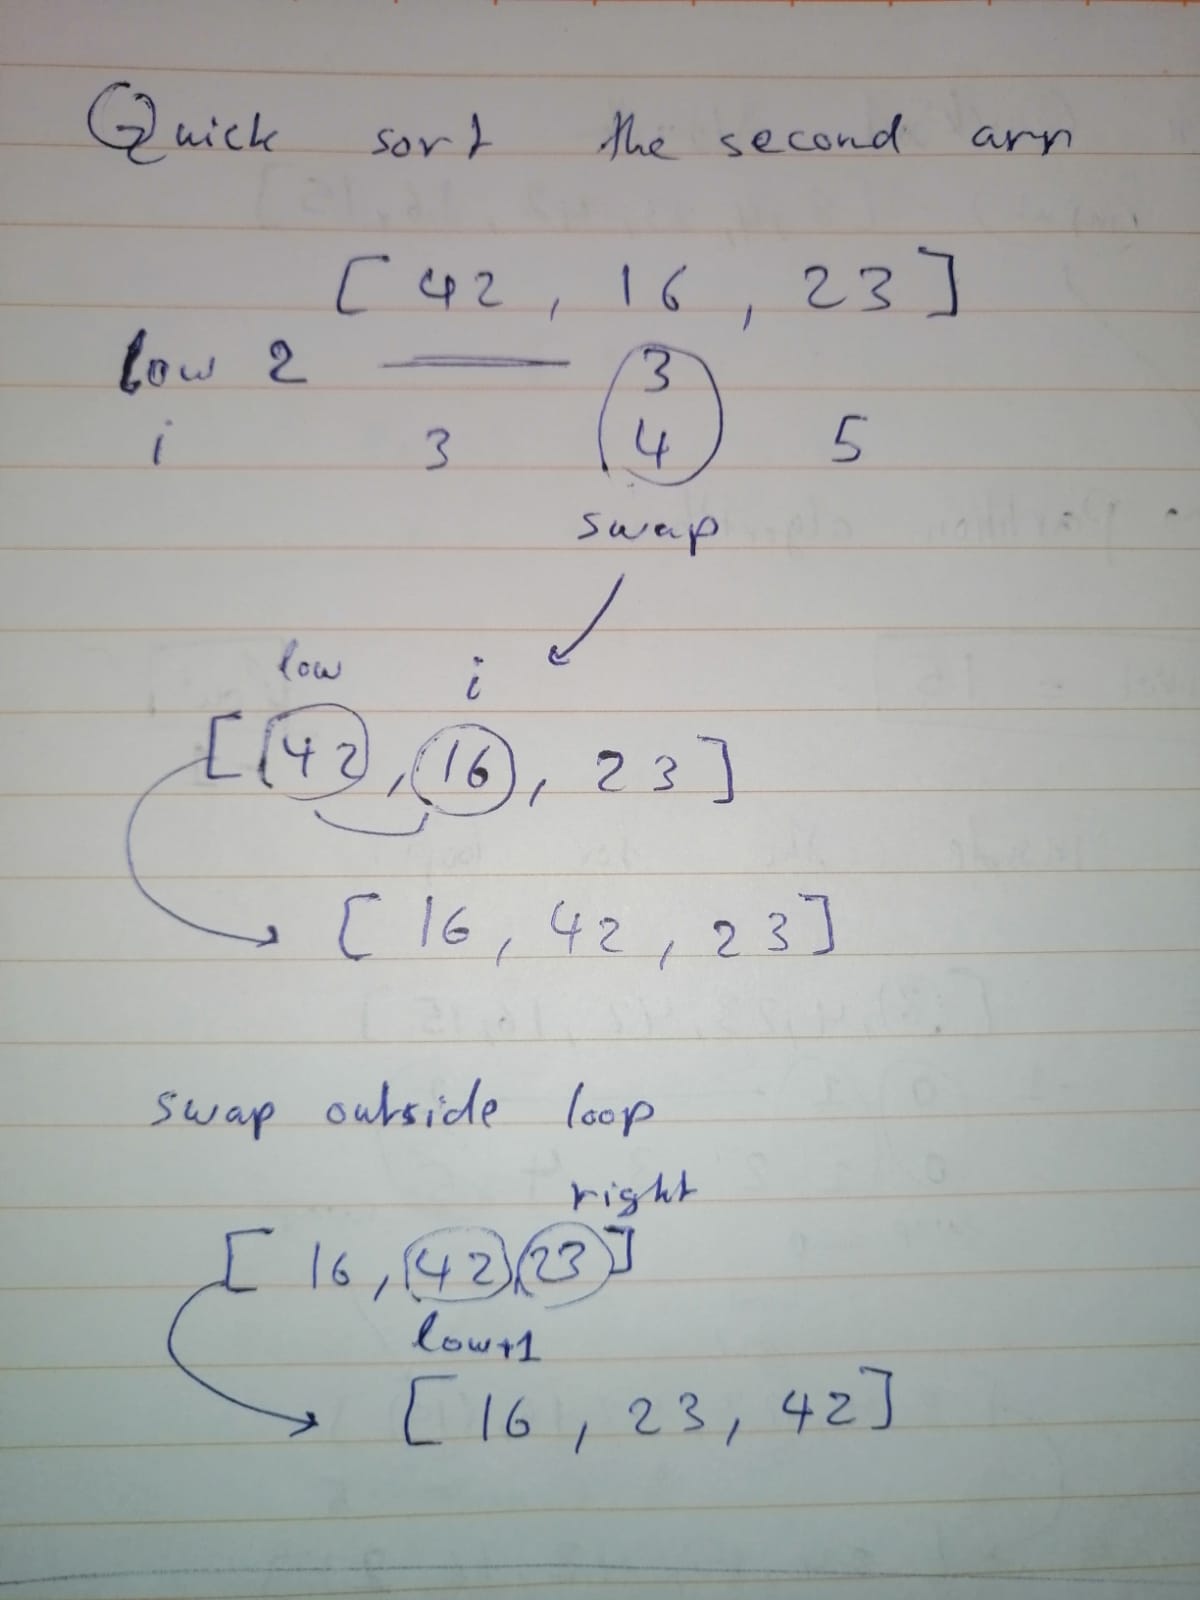 Quick sort the second arr
[ 42 , 16 , 23 ]
low 2 3
i 3 4 5
swap
low i
[ 42 , 16 , 23 ]
[ 16 , 42 , 23 ]
swap outside loop
right
[ 16 , 42 , 23 ]
low+1
[ 16 , 23 , 42 ]